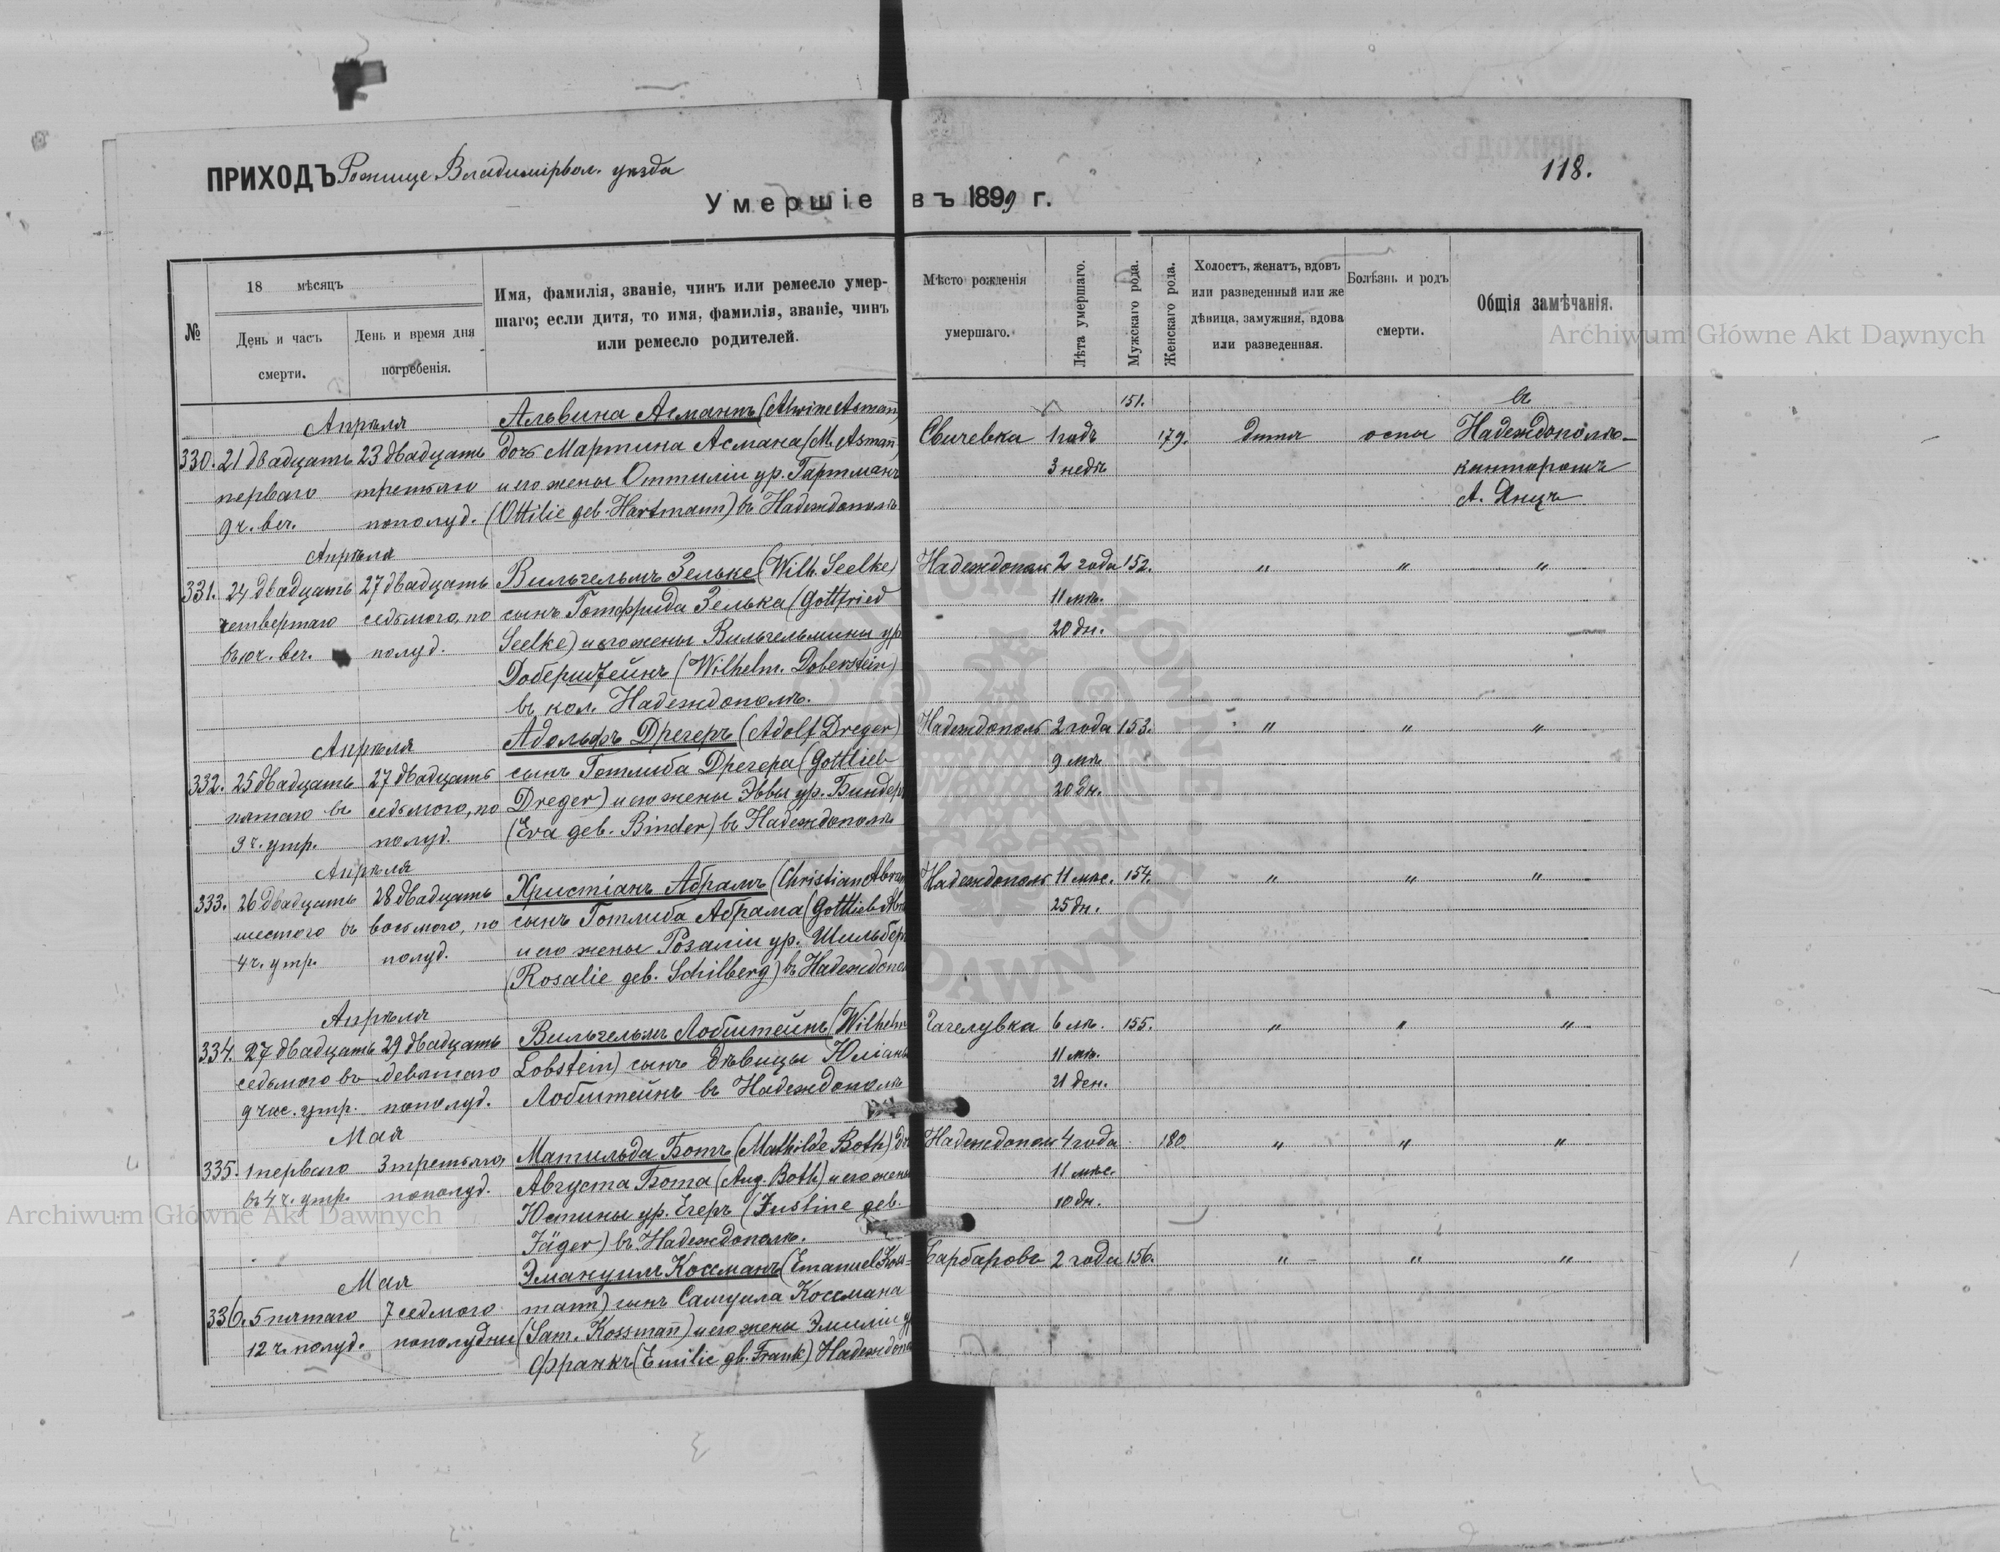 118.
ПРИХОДЪ Рожище Владимірвол. уѣзда
Умершіе въ 1899 г.
№
18 мѣсяцъ
День и часъ
смерти.
День и время дня
погребенія.
Имя, фамилія, званіе, чинъ или ремесло умер-
шаго; если дитя, то имя, фамилія, званіе, чинъ
или ремесло родителей.
Мѣсто рожденія
умершаго.
Лѣта умершаго.
Мужскаго рода.
Женскаго рода.
Холостъ, женатъ, вдовъ
или разведенный или же
дѣвица, замужняя, вдова
или разведенная.
Болѣзнь и родъ
смерти.
Общія замѣчанія.
Апрѣля
330. 21 двадцать
перваго
9 ч. веч.
23 двадцать
третьяго
пополуд.
Альвина Асманъ (Alwine Asmañ)
дочь Мартина Асмана (M. Asmañ)
и его жены Оттиліи ур. Гартманъ
(Ottilie geb. Hartmann) въ Надеждополѣ
Свичевка
1 годъ
3 недѣ
151.
179.
дитя
оспы
въ
Надеждополѣ-
канторомъ
А. Янцъ
Апрѣля
331. 24 двадцать
четвертаго
въ 10 ч. веч.
27 двадцать
седьмого, по
полуд.
Вильгельмъ Зельке (Wilh. Seelke)
сынъ Готфрида Зелька (Gottfried
Seelke) и его жены Вильгельмины ур
Доберштейнъ (Wilhelm. Doberstein)
въ кол. Надеждополѣ.
Надеждополь
2 года
11 мѣ.
20 дн.
152.
" " "
Апрѣля
332. 25 двадцать
пятаго въ
3 ч. утр.
27 двадцать
седьмого, по
полуд.
Адольфъ Дрегеръ (Adolf Dreger)
сынъ Готлиба Дрегера (Gottlieb
Dreger) и его жены Эввы ур. Биндеръ
(Eva geb. Binder) въ Надеждополѣ
Надеждополь
2 года
9 мѣ.
20 дн.
153.
" " "
Апрѣля
333. 26 двадцать
шестого въ
4 ч. утр.
28 двадцать
восьмого, по
полуд.
Христіанъ Абрамъ (Christian Abram
сынъ Готлиба Абрама (Gottlieb Abr
и его жены Розаліи ур. Шильберг
(Rosalie geb. Schilberg) въ Надеждопол
Надеждополь
11 мѣс.
25 дн.
154.
" " "
Апрѣля
334. 27 двадцать
седьмого въ
9 час. утр.
29 двадцать
девятаго
пополуд.
Вильгельмъ Лобштейнъ (Wilhelm
Lobstein) сынъ дѣвицы Юліаны
Лобштейнъ въ Надеждополѣ
6 лѣ.
11 мѣ.
21 ден.
155.
" " "
Мая
335. 1 перваго
въ 4 ч. утр.
3 третьяго
пополуд.
Матильда Ботъ (Mathilde Both) доч
Августа Бота (Aug. Both) и его жены
Юстины ур. Егеръ (Justine geb.
Jäger) въ Надеждополѣ.
Надеждополь
4 года
11 мѣс.
10 дн.
180
" " "
Мая
336. 5 пятаго
12 ч. полуд.
7 седмого
пополудни
Эмануилъ Коссманъ (Emanuel Koss-
mann) сынъ Самуила Коссмана
(Sam. Kossmañ) и его жены Эмиліи ур
Франкъ (Emilie gb. Frank) Надеждопол
Барбаровъ
2 года
156.
" " "
Archiwum Główne Akt Dawnych
Archiwum Główne Akt Dawnych